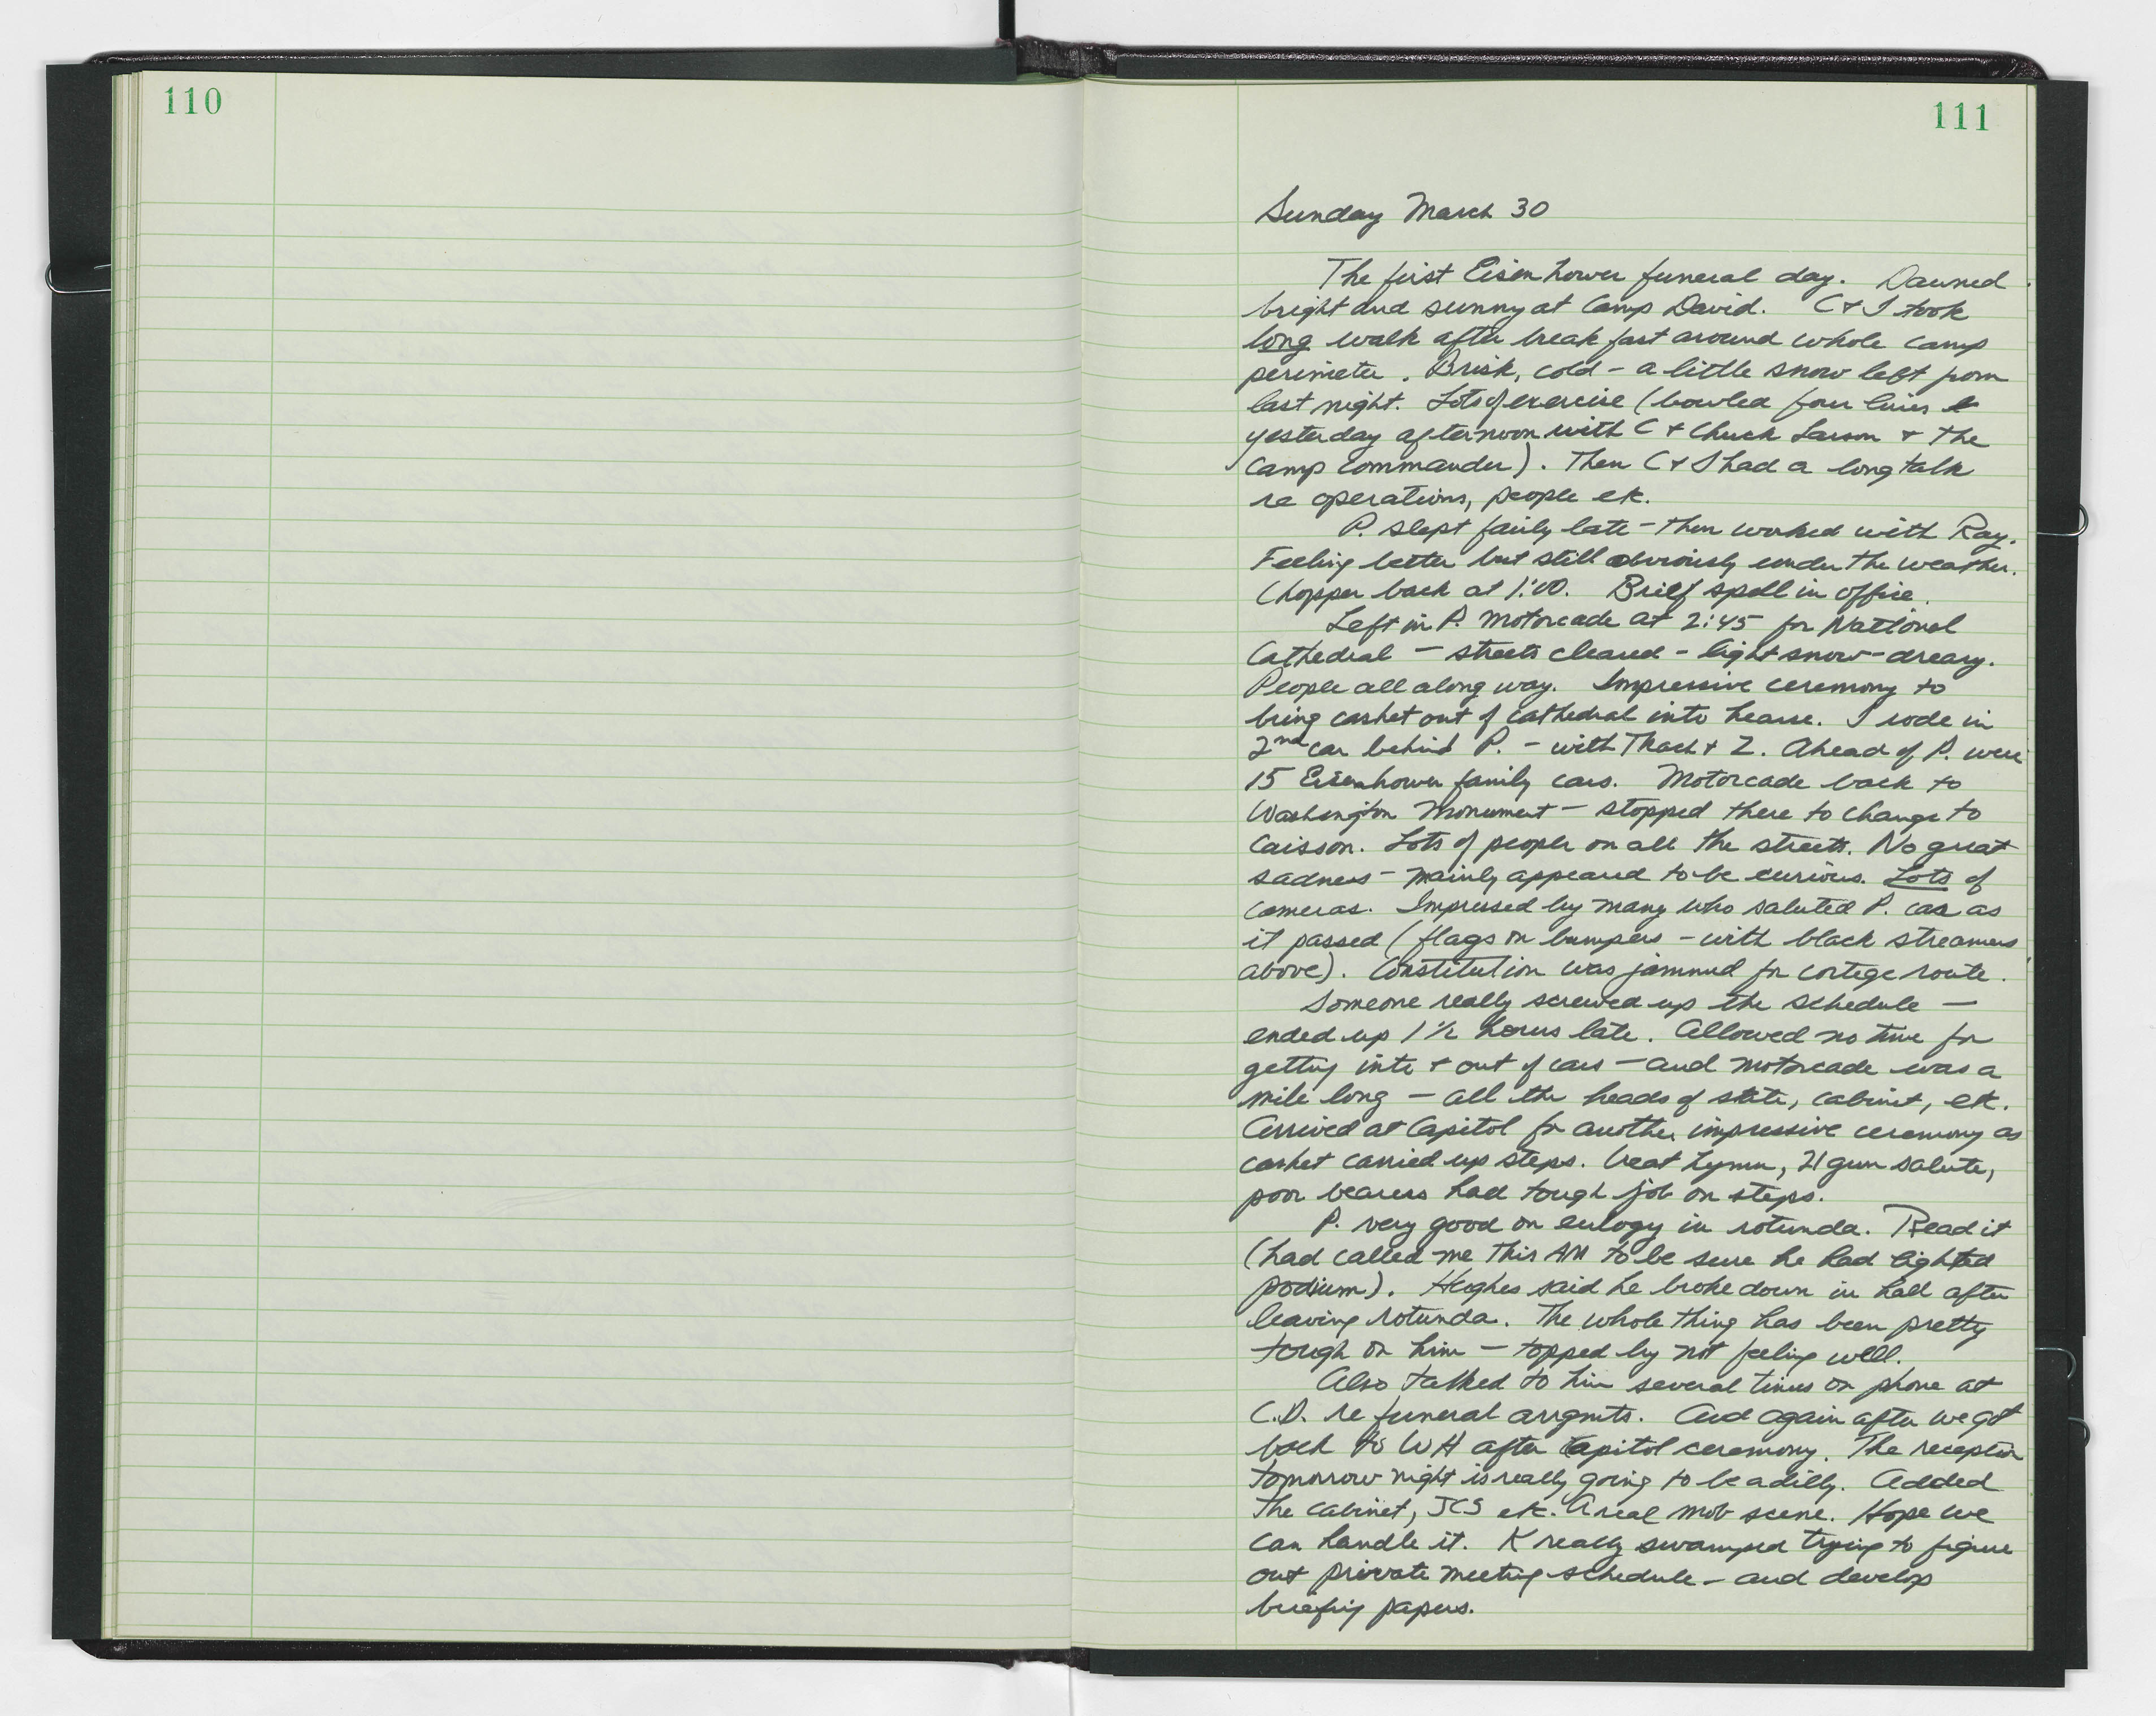 110
111
Sunday March 30
The first Eisenhower funeral day. Dawned
bright and sunny at Camp David. C & I took
long walk after breakfast around whole camp
perimeter. Brisk, cold - a little snow left from
last night. Lots of exercise (bowled four lines
yesterday afternoon with C & Chuck Larson & the
camp commander). Then C & I had a long talk
re operations, people etc.
P. slept fairly late - then worked with Ray.
Feeling better but still obviously under the weather.
Chopper back at 1:00. Brief spell in office.
Left in P. motorcade at 2:45 for National
Cathedral - streets cleared - light snow - dreary.
People all along way. Impressive ceremony to
bring casket out of cathedral into hearse. I rode in
2nd car behind P. - with Thach & Z. Ahead of P. were
15 Eisenhower family cars. Motorcade back to
Washington Monument - stopped there to change to
caisson. Lots of people on all the streets. No great
sadness - mainly appeared to be curious. Lots of
cameras. Impressed by many who saluted P. car as
it passed (flags on bumpers - with black streamers
above). Constitution was jammed for cortege route.
Someone really screwed up the schedule -
ended up 1 1/2 hours late. Allowed no time for
getting into & out of cars - and motorcade was a
mile long - all the heads of state, cabinet, etc.
Arrived at Capitol for another impressive ceremony as
casket carried up steps. Great hymn, 21 gun salute,
poor bearers had tough job on steps.
P. very good on eulogy in rotunda. Read it
(had called me this AM to be sure he had lighted
podium). Hughes said he broke down in hall after
leaving rotunda. The whole thing has been pretty
tough on him - topped by not feeling well.
Also talked to him several times on phone at
C.D. re funeral arrgmts. And again after we got
back to WH after Capitol ceremony. The reception
tomorrow night is really going to be a dilly. Added
the cabinet, JCS etc. A real mob scene. Hope we
can handle it. K really swamped trying to figure
out private meeting schedule - and develop
briefing papers.